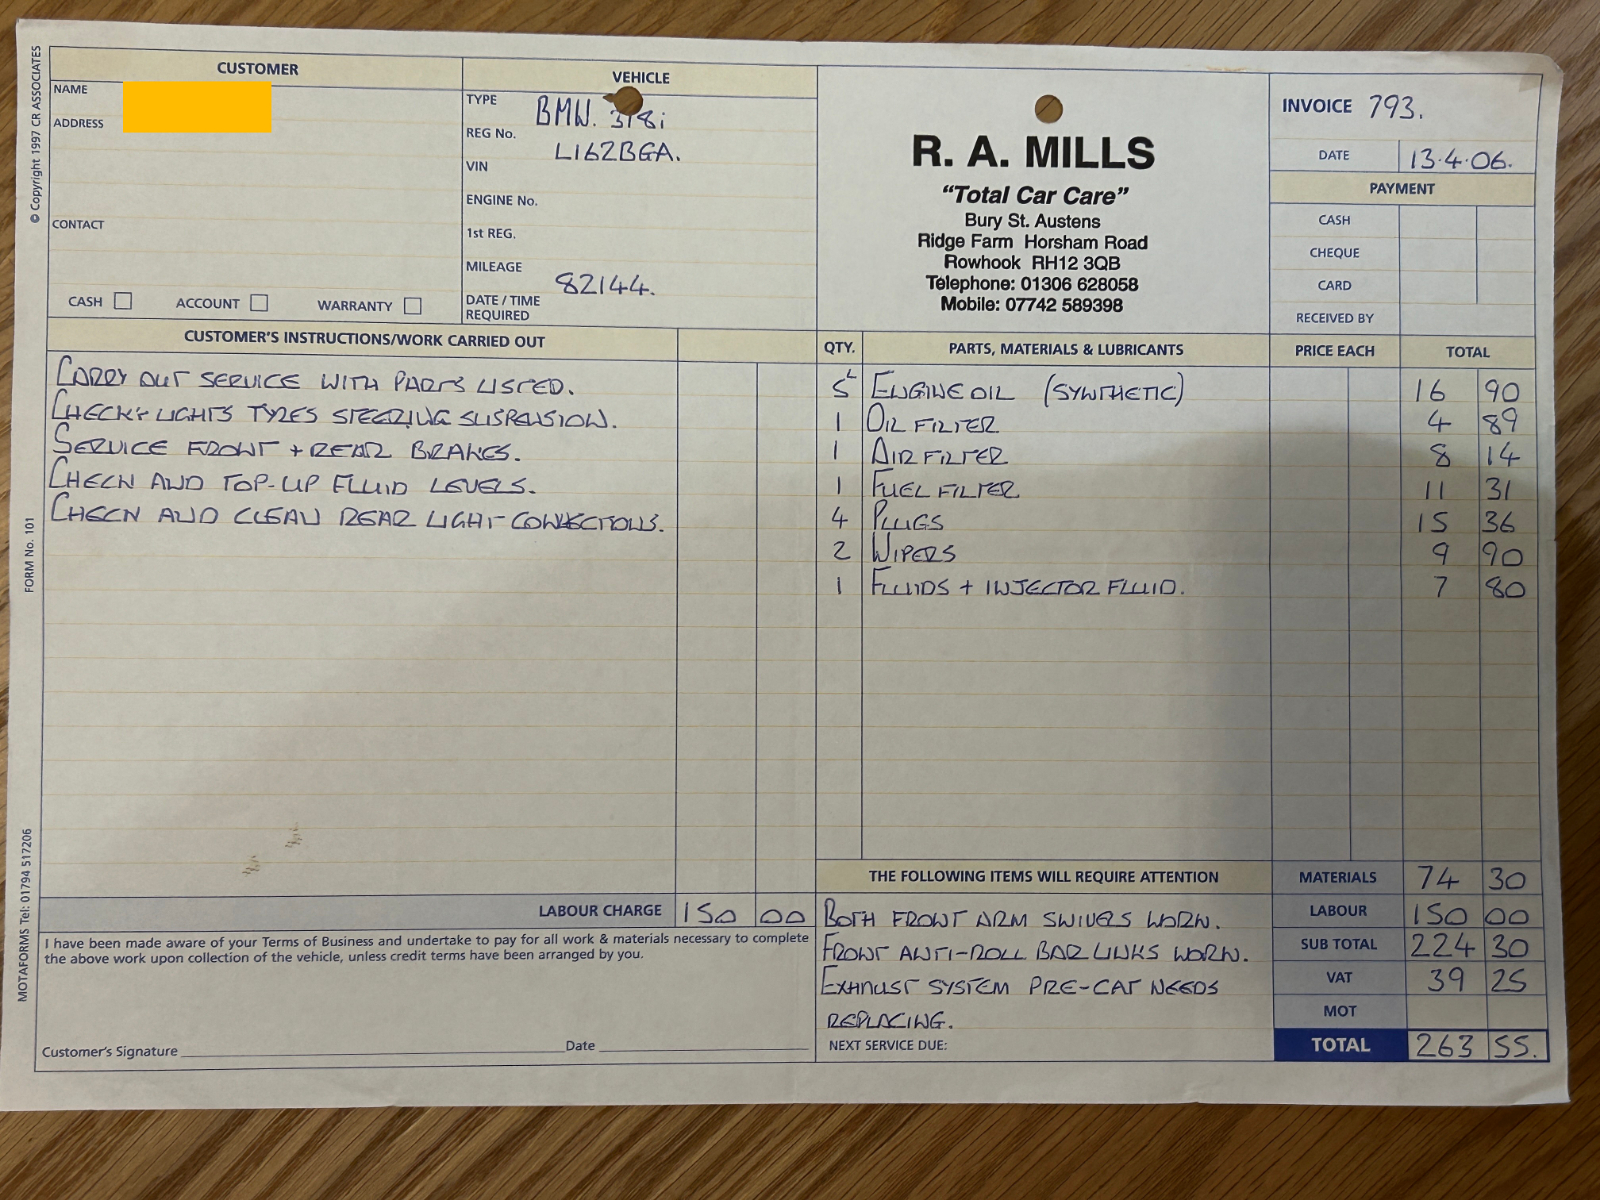 © Copyright 1997 CR ASSOCIATES
FORM No. 101
MOTAFORMS Tel: 01794 517206
CUSTOMER
NAME
ADDRESS
CONTACT
CASH ACCOUNT WARRANTY
VEHICLE
TYPE BMW. 318i
REG No. L162BGA.
VIN
ENGINE No.
1st REG.
MILEAGE 82144.
DATE / TIME
REQUIRED
R. A. MILLS
“Total Car Care”
Bury St. Austens
Ridge Farm Horsham Road
Rowhook RH12 3QB
Telephone: 01306 628058
Mobile: 07742 589398
INVOICE 793.
DATE 13·4·06.
PAYMENT
CASH
CHEQUE
CARD
RECEIVED BY
CUSTOMER'S INSTRUCTIONS/WORK CARRIED OUT
CARRY OUT SERVICE WITH PARTS LISTED.
CHECK:- LIGHTS TYRES STEERING SUSPENSION.
SERVICE FRONT + REAR BRAKES.
CHECK AND TOP-UP FLUID LEVELS.
CHECK AND CLEAN REAR LIGHT CONNECTIONS.
LABOUR CHARGE 150 00
QTY. PARTS, MATERIALS & LUBRICANTS PRICE EACH TOTAL
5L ENGINE OIL (SYNTHETIC) 16 90
1 OIL FILTER 4 89
1 AIR FILTER 8 14
1 FUEL FILTER 11 31
4 PLUGS 15 36
2 WIPERS 9 90
1 FLUIDS + INJECTOR FLUID. 7 80
I have been made aware of your Terms of Business and undertake to pay for all work & materials necessary to complete
the above work upon collection of the vehicle, unless credit terms have been arranged by you.
Customer's Signature Date
THE FOLLOWING ITEMS WILL REQUIRE ATTENTION
BOTH FRONT ARM SWIVELS WORN.
FRONT ANTI-ROLL BAR LINKS WORN.
EXHAUST SYSTEM PRE-CAT NEEDS
REPLACING.
NEXT SERVICE DUE:
MATERIALS 74 30
LABOUR 150 00
SUB TOTAL 224 30
VAT 39 25
MOT
TOTAL 263 55.